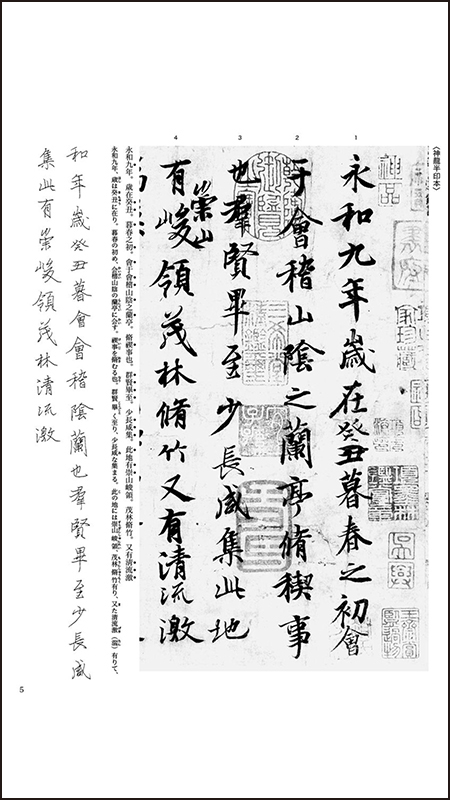 〈神龍半印本〉
1
2
3
4
永和九年歳在癸丑暮春之初會
于會稽山陰之蘭亭脩稧事
也羣賢畢至少長咸集此地
有崇山峻領茂林脩竹又有清流激
永和九年。歳在癸丑。暮春之初。會于會稽山陰之蘭亭。脩禊事也。群賢畢至。少長咸集。此地有崇山峻領。茂林脩竹。又有清流激
永和九年、歳は癸丑に在り。暮春の初め、会稽山陰の蘭亭に会す。禊事を脩むる也。群賢畢く至り、少長咸な集まる。此の地には崇山峻領、茂林脩竹有り。又た清流激(湍)有りて、
和年歳癸丑暮會會稽陰蘭也羣賢畢至少長咸
集此有崇峻領茂林清流激
5